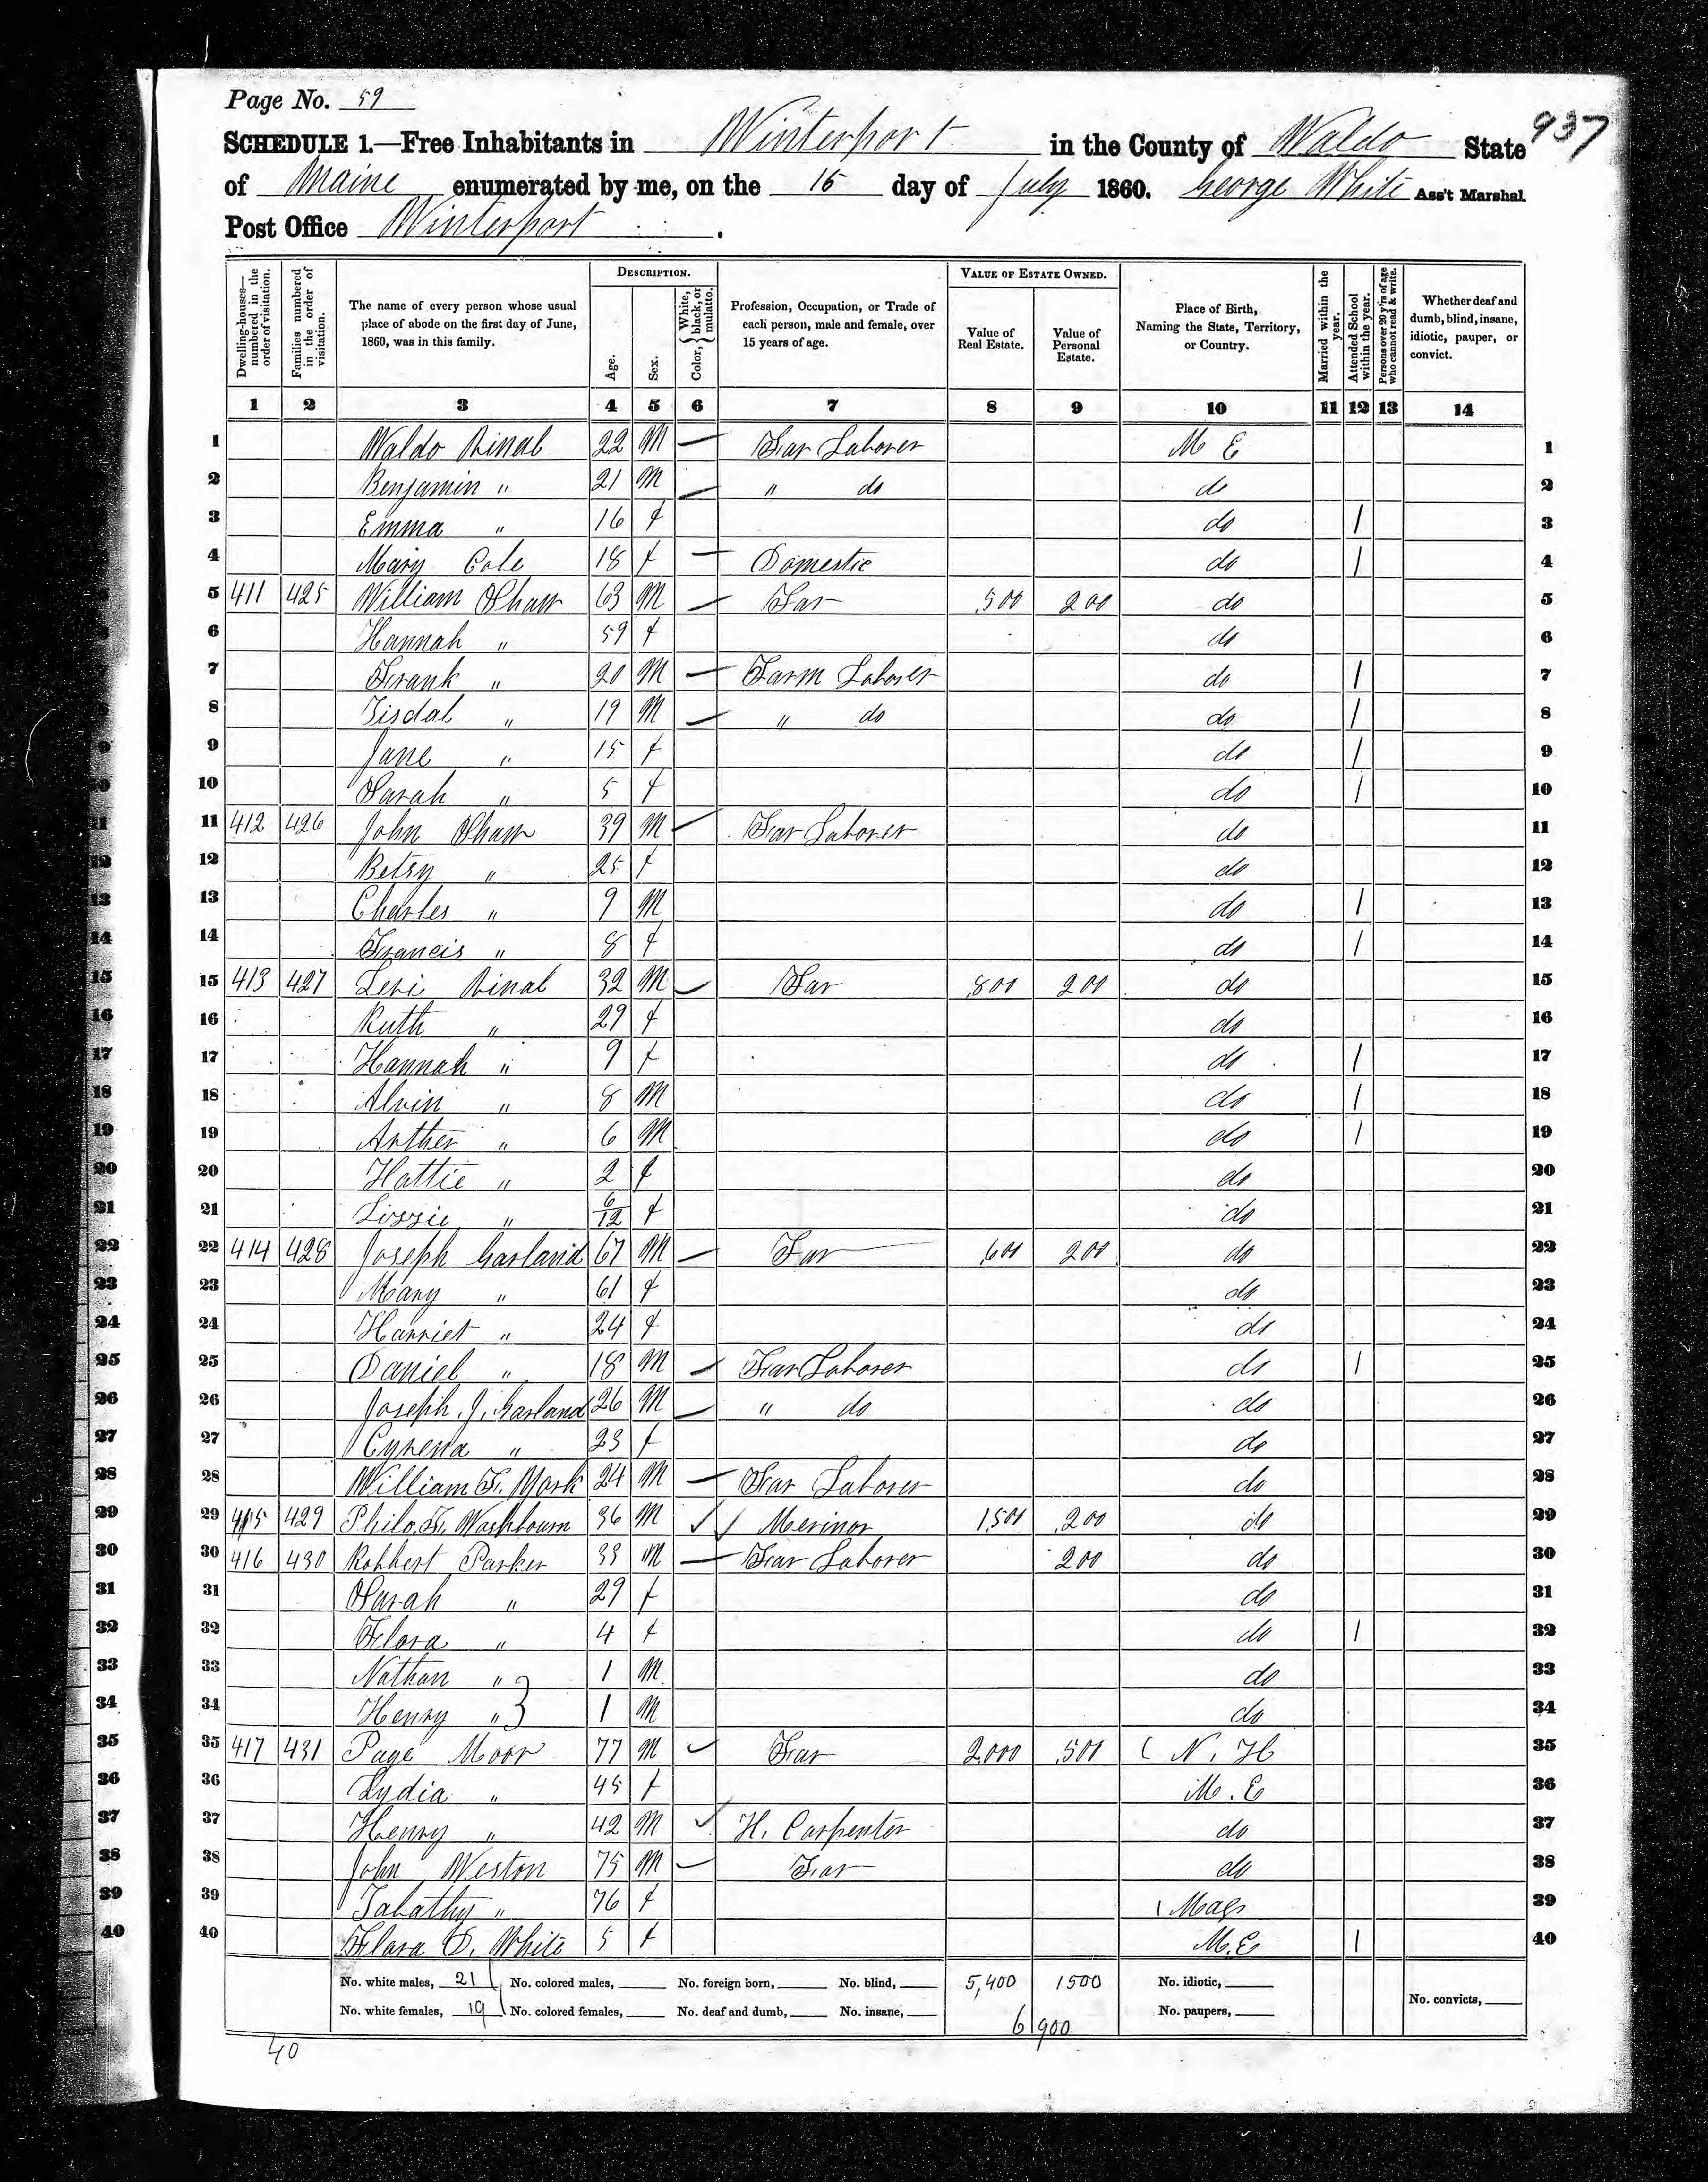 Page No. 59
937
SCHEDULE 1.—Free Inhabitants in Winterport in the County of Waldo State
of Maine enumerated by me, on the 15 day of July 1860. George White Ass't Marshal.
Post Office Winterport.
Dwelling-houses—numbered in the order of visitation.
Families numbered in the order of visitation.
The name of every person whose usual place of abode on the first day of June, 1860, was in this family.
DESCRIPTION.
Age.
Sex.
Color, { White, black, or mulatto.
Profession, Occupation, or Trade of each person, male and female, over 15 years of age.
VALUE OF ESTATE OWNED.
Value of Real Estate.
Value of Personal Estate.
Place of Birth, Naming the State, Territory, or Country.
Married within the year.
Attended School within the year.
Persons over 20 y'rs of age who cannot read & write.
Whether deaf and dumb, blind, insane, idiotic, pauper, or convict.
1 2 3 4 5 6 7 8 9 10 11 12 13 14
1 Waldo Rinal 22 M — Far Laborer M E 1
2 Benjamin " 21 M — " do do 2
3 Emma " 16 f do / 3
4 Mary Cole 18 f — Domestic do / 4
5 411 425 William Shaw 63 M — Far 500 200 do 5
6 Hannah " 59 f do 6
7 Frank " 20 M — Farm Laborer do / 7
8 Tisdal " 19 M — " do do / 8
9 Jane " 15 f do / 9
10 Sarah " 5 f do / 10
11 412 426 John Shaw 39 M — Far Laborer do 11
12 Betsy " 25 f do 12
13 Charles " 9 M do / 13
14 Francis " 8 f do / 14
15 413 427 Levi Rinal 32 M — Far 800 200 do 15
16 Ruth " 29 f do 16
17 Hannah " 9 f do / 17
18 Alvin " 8 M do / 18
19 Arther " 6 M do / 19
20 Hattie " 2 f do 20
21 Lizzie " 6/12 f do 21
22 414 428 Joseph Garland 67 M — Far 600 200 do 22
23 Mary " 61 f do 23
24 Harriet " 24 f do 24
25 Daniel " 18 M — Far Laborer do / 25
26 Joseph J. Garland 26 M — " do do 26
27 Cyrena " 23 f do 27
28 William F. York 24 M — Far Laborer do 28
29 415 429 Philo F. Washbourn 36 M ✓ ✓ Merinor 1,500 200 do 29
30 416 430 Robbert Parker 33 M — Far Laborer 200 do 30
31 Sarah " 29 f do 31
32 Flora " 4 f do / 32
33 Nathan " } 1 M do 33
34 Henry " } 1 M do 34
35 417 431 Page Moor 77 M ✓ Far 2,000 500 ( N. H 35
36 Lydia " 45 f M. E 36
37 Henry " 42 M ✓ H. Carpenter do 37
38 John Weston 75 M — Far do 38
39 Tabathy " 76 f ( Mass 39
40 Flora D. White 5 f M. E / 40
No. white males, 21 No. colored males, No. foreign born, No. blind, 5,400 1500 No. idiotic,
No. white females, 19 No. colored females, No. deaf and dumb, No. insane, No. paupers, No. convicts,
6 900
40